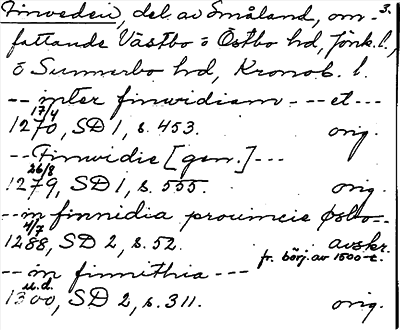 3.
Finveden, del av Småland, om-
fattande Västbo o Östbo hd, Jönk. l.,
o Sunnerbo hd, Kronob. l.
-- inter finwidiam --- et ---
17/4
1270, SD 1, s. 453. orig.
-- Finwidie [gen.] ---
26/8
1279, SD 1, s. 555. orig.
-- in finnidia prouincie øsbo --
4/7
1288, SD 2, s. 52. avskr.
fr. börj. av 1500-t.
-- in finnithia ---
u.d.
1300, SD 2, s. 311. orig.